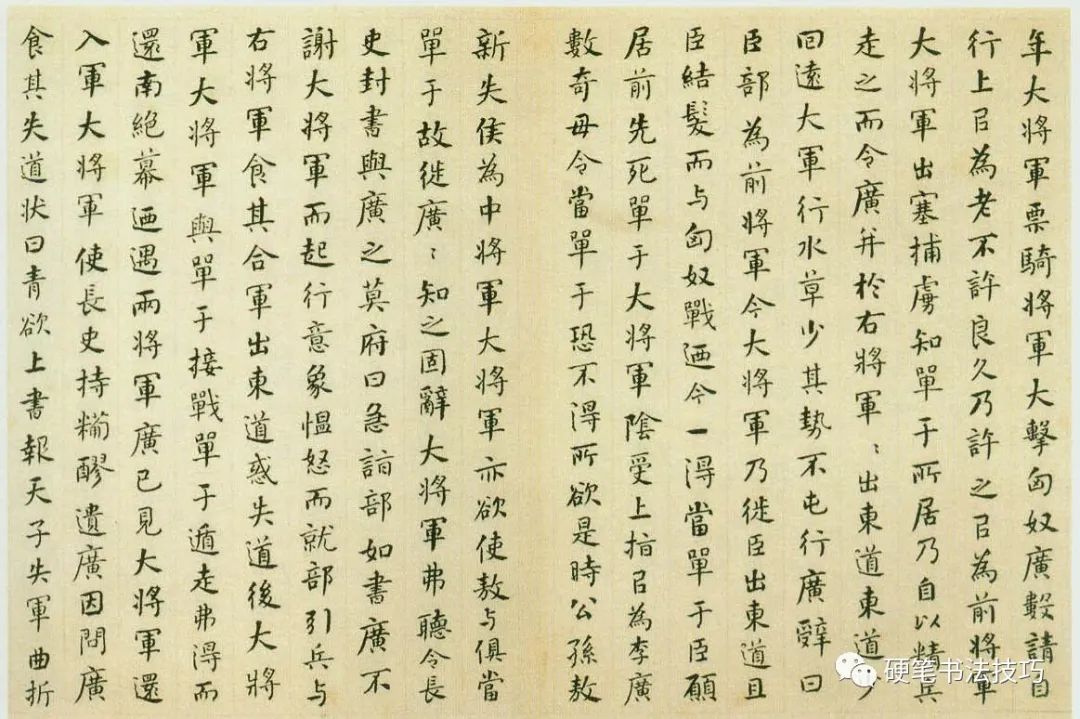 年大将軍票騎将軍大擊匈奴廣數請自
行上㠯為老不許良久乃許之㠯為前将軍
大将軍出塞捕虜知單于所居乃自以精兵
走之而令廣并於右將軍〻出東道東道少
回遠大軍行水草少其勢不屯行廣辭曰
臣部為前將軍今大將軍乃徙臣出東道且
臣結髮而与匈奴戰迺今一得當單于臣願
居前先死單于大將軍陰受上指㠯為李廣
數奇毋令當單于恐不得所欲是時公孫敖
新失侯為中將軍大将軍亦欲使敖与俱當
單于故徙廣〻知之固辭大将軍弗聽令長
史封書與廣之莫府曰急詣部如書廣不
謝大将軍而起行意象愠怒而就部引兵与
右將軍食其合軍出東道惑失道後大將
軍大将軍與單于接戰單于遁走弗得而
還南絕幕迺遇兩将軍廣已見大将軍還
入軍大将軍使長史持糒醪遺廣因問廣
食其失道状曰青欲上書報天子失軍曲折
硬笔书法技巧